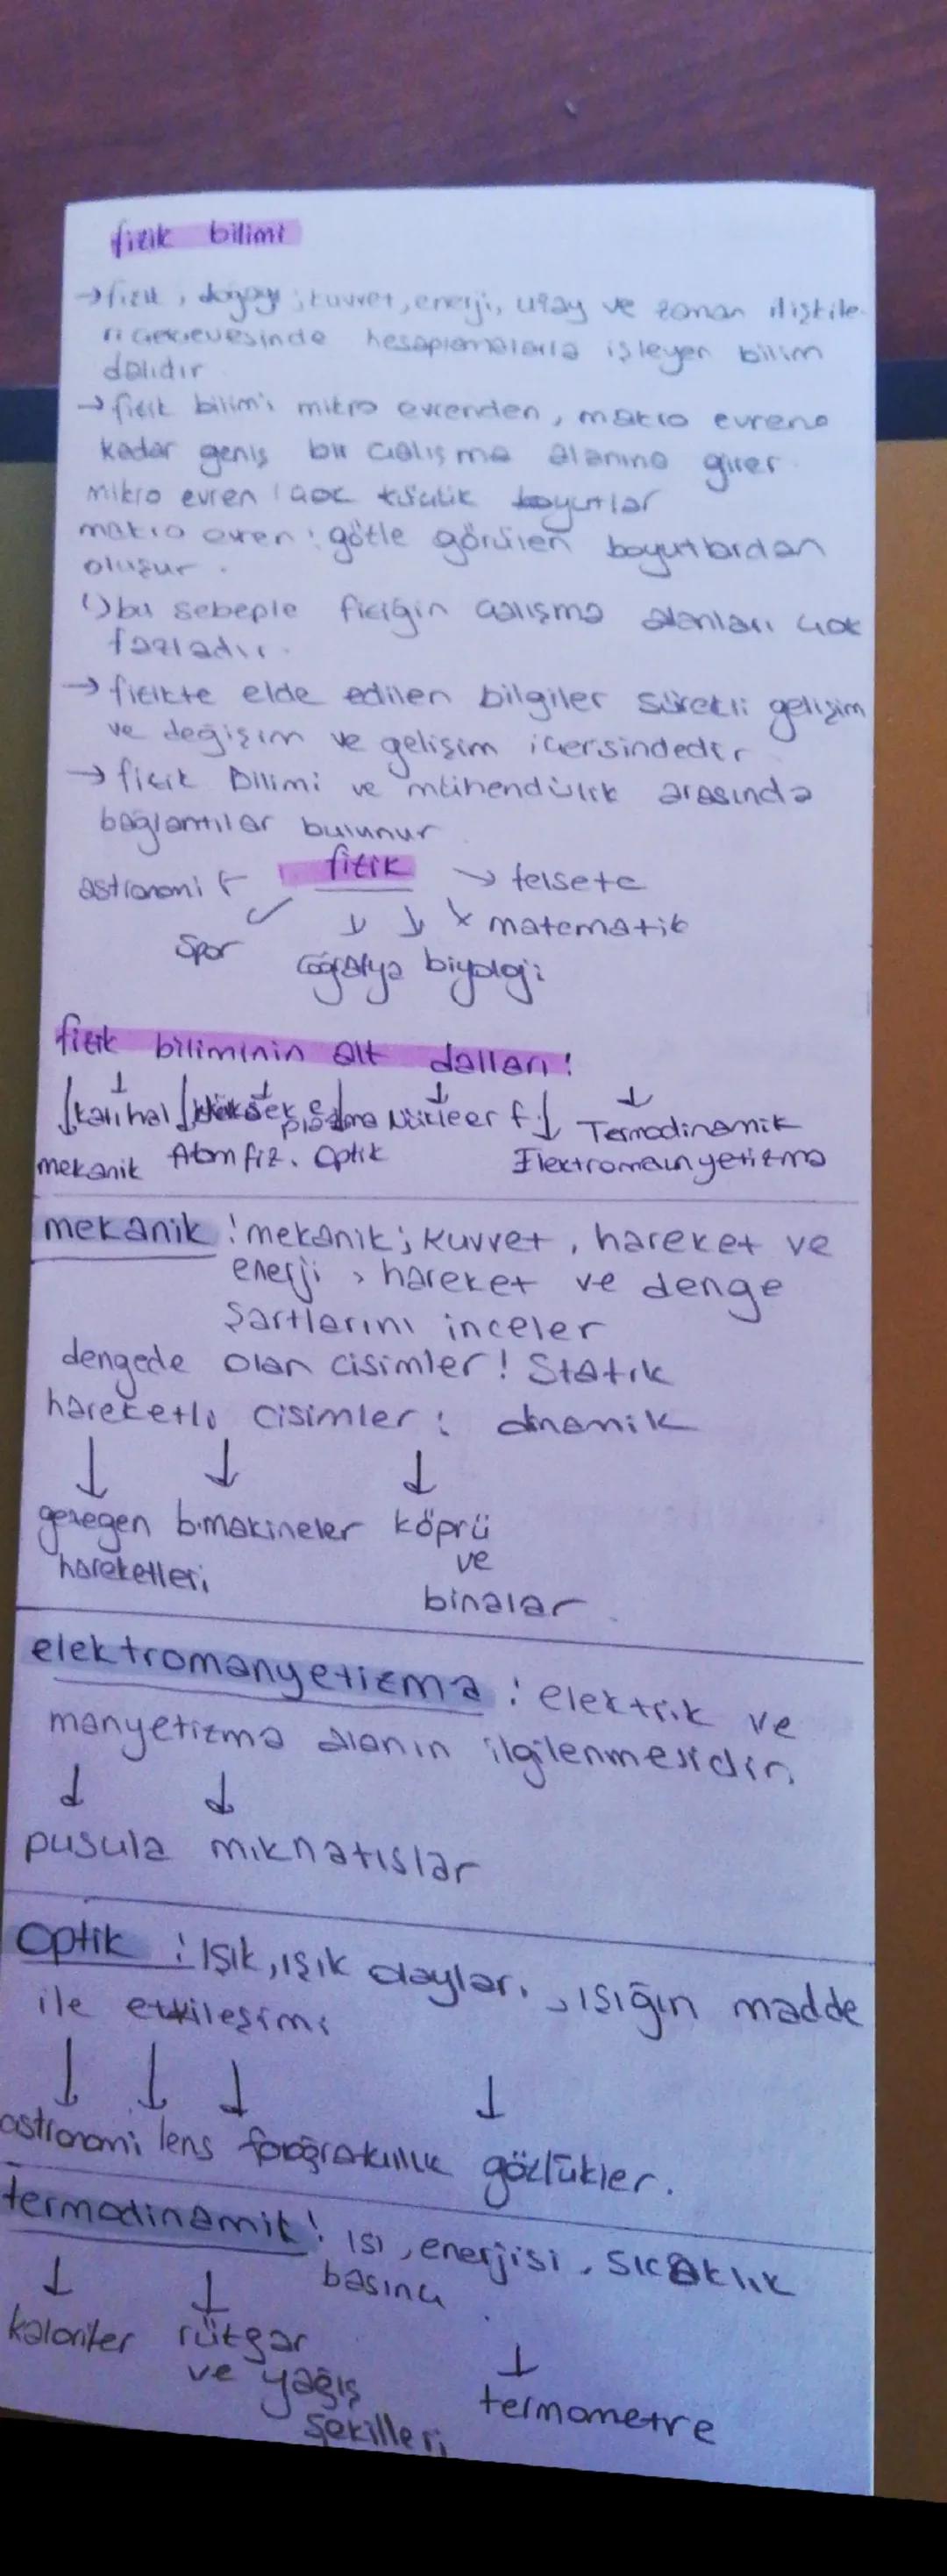 fizik bilimi
→ fizik, doğayı; kuvvet, enerji, uzay ve zaman ilişkile-
ri çerçevesinde hesaplamalarla işleyen bilim
dalıdır
→ fizik bilimi mikro evrenden, makro evrene
kadar geniş bir çalışma alanına girer
mikro evren : çok küçük boyutlar
makro evren : gözle görülen boyutlardan
oluşur.
↳ bu sebeple fiziğin çalışma alanları çok
fazladır.
→ fizikte elde edilen bilgiler sürekli gelişim
ve değişim ve gelişim içerisindedir
→ fizik Bilimi ve mühendislik arasında
bağlantılar bulunur
fizik
astronomi ← → felsefe
matematik
Spor
coğrafya biyoloji
fizik biliminin alt dalları:
↓ katıhal ↓ yüksek e. ↓ plazma Nükleer f. ↓ Termodinamik
mekanik Atom fiz. Optik Elektromanyetizma
mekanik : mekanik; kuvvet, hareket ve
enerji, hareket ve denge
Şartlarını inceler
dengede olan cisimler : Statik
hareketli cisimler : dinamik
↓ ↓ ↓
gezegen b.makineler köprü
hareketleri ve
binalar
elektromanyetizma : elektrik ve
manyetizma alanın ilgilenmesidir.
↓ ↓
pusula mıknatıslar
Optik : Işık, ışık olayları, ışığın madde
ile etkileşimi
↓ ↓ ↓ ↓
astronomi lens fotoğrafçılık gözlükler.
termodinamik : ısı, enerjisi, sıcaklık
basıncı
↓ ↓ ↓
kalorifer rüzgar termometre
ve yağış
şekilleri